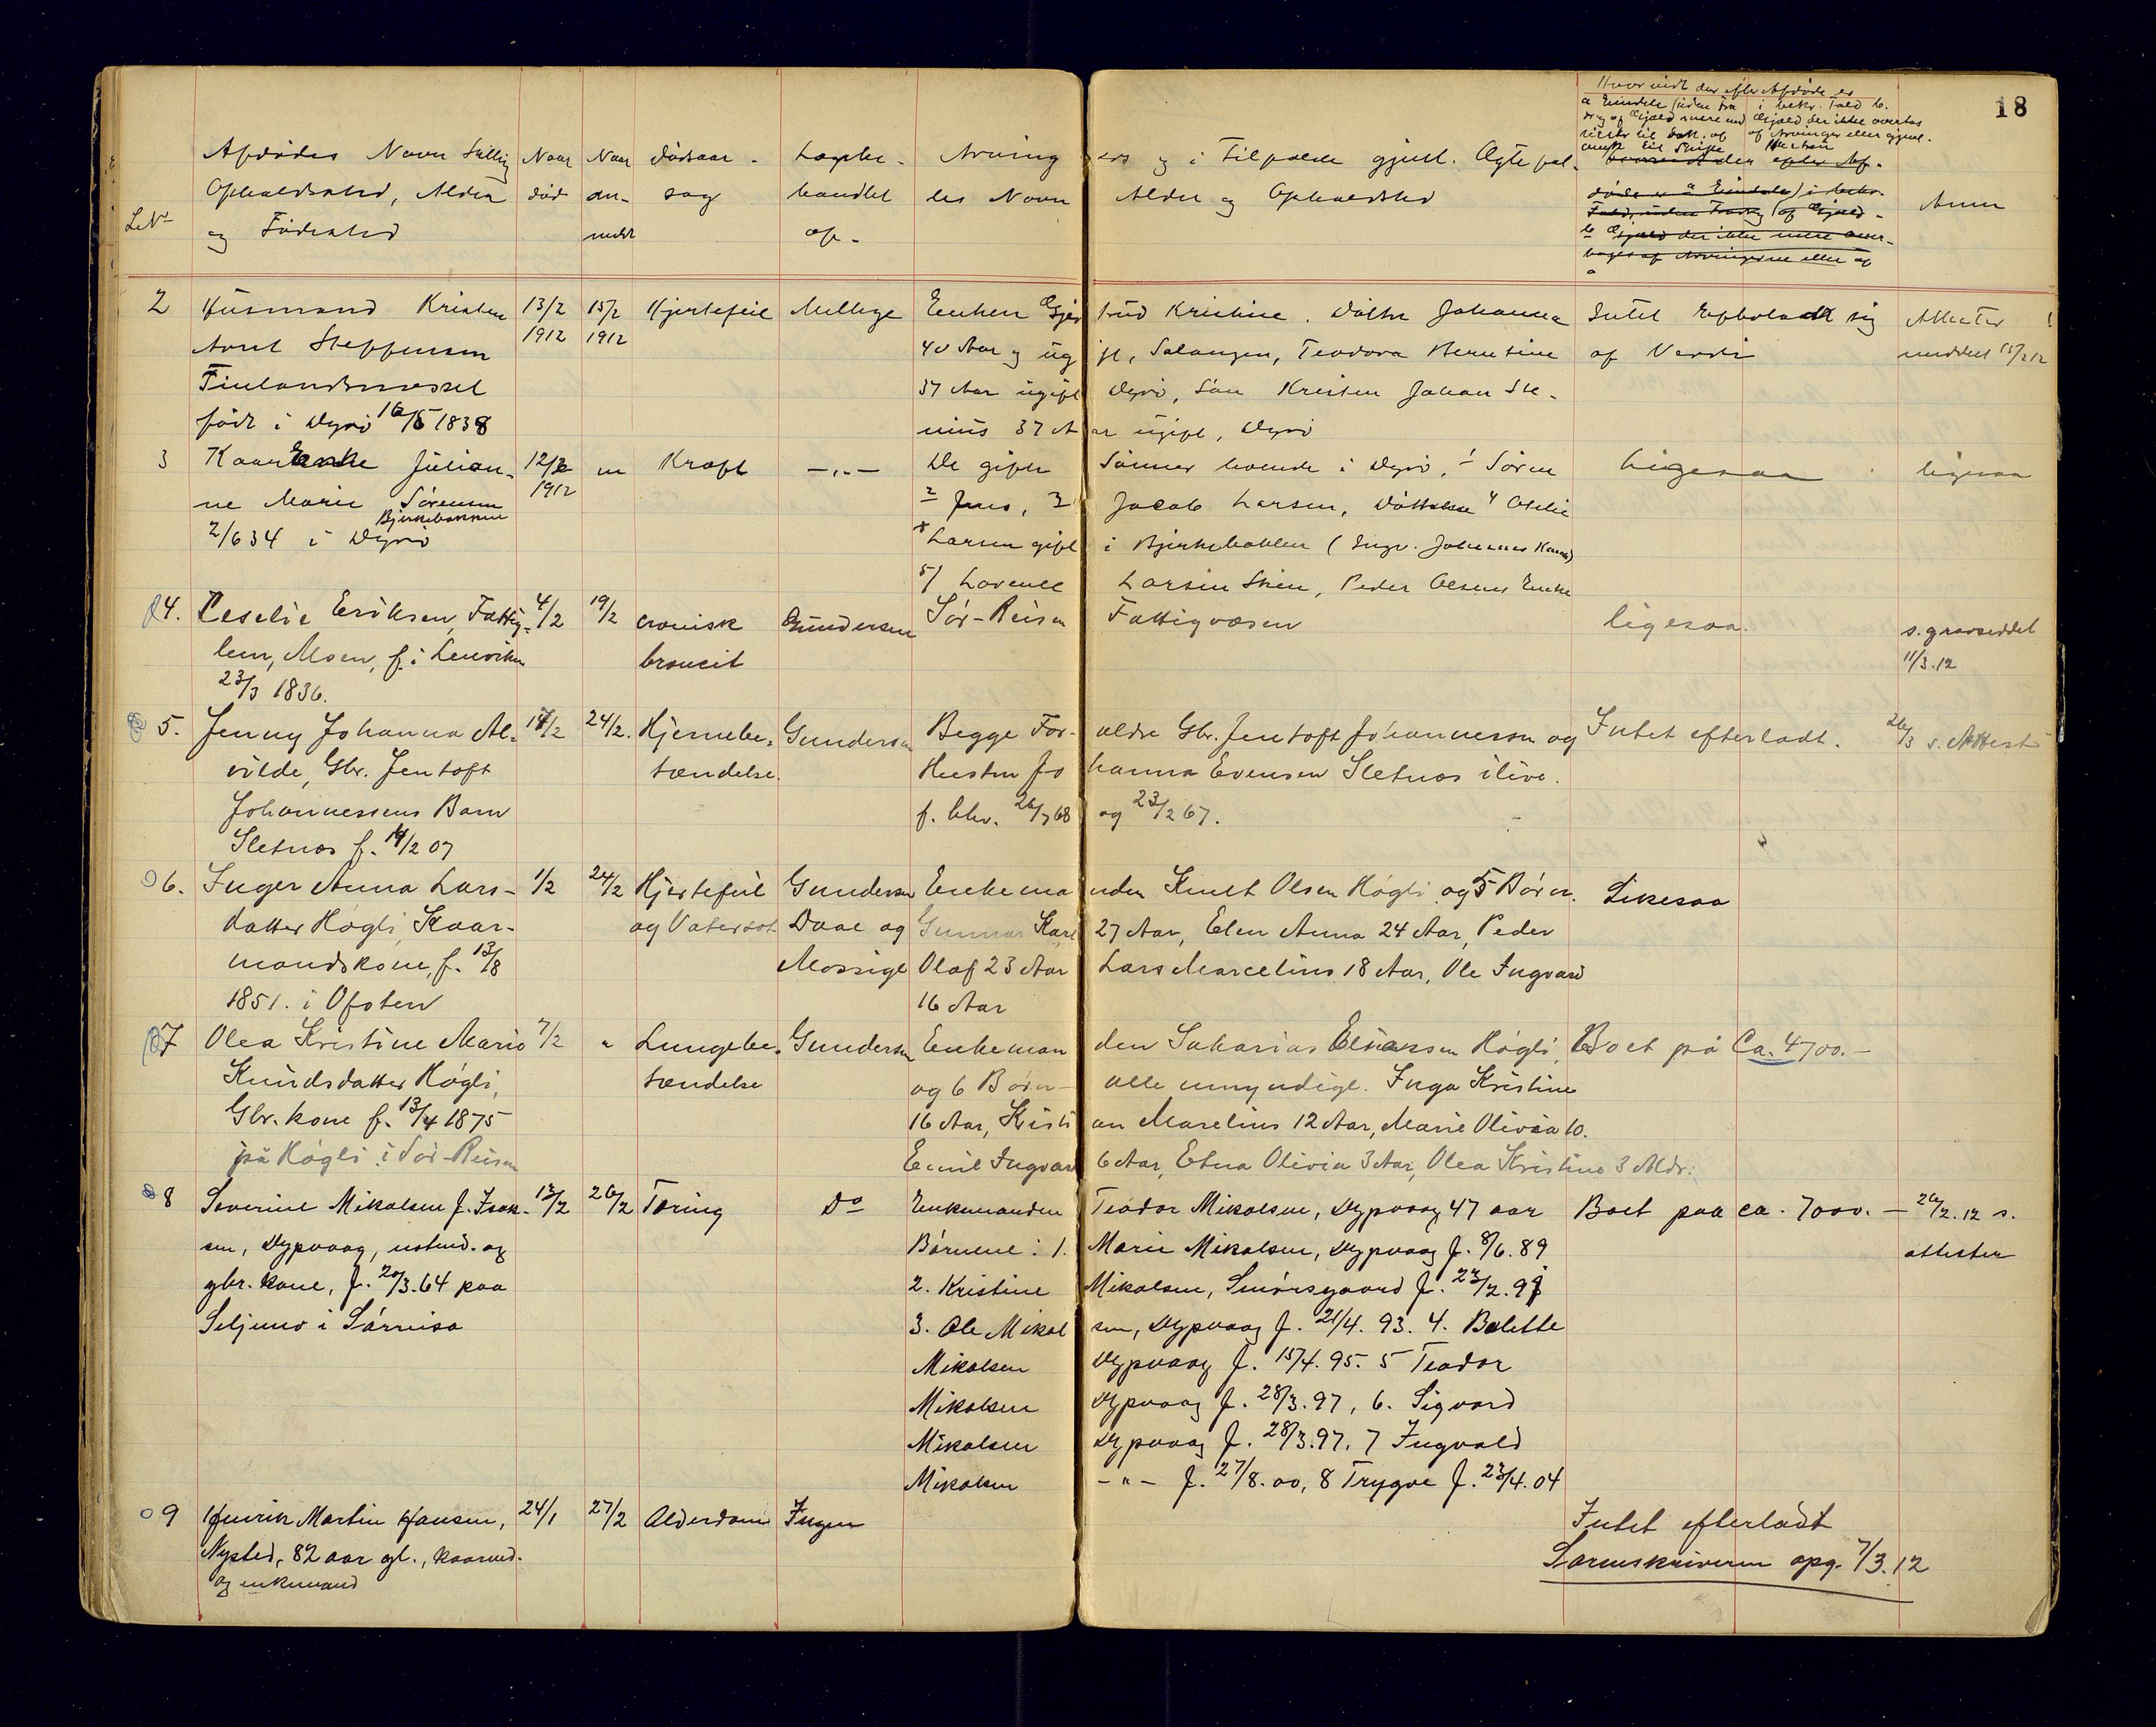 18
Afdødes Navn Stilling
Opholdssted, Alder
og Fødested
LNr
Naar
død
Naar
an-
meldt
Dødsaar-
sag
Lægebe-
handlet
af.
Arvingers og i Tilfælde gjenl. Ægtefel-
les Navn Alder og Opholdssted
Hvorvidt der efter Afdøde er
Anm
2 Husmand Kristen 13/2 15/2 Hjertefeil Enken Gjertrud Kristine. Datter Johanna Intet Efterladt sig Attester
Arnt Steffensen 1912 1912 40 Aar og ugift, Salangen, Teodora Berntine af Verdi meddelt 15/2 12
Finlandsmessel 37 Aar ugift Dyrø, Søn Kristen Johan Ste-
født i Dyrø 16/5 1838 nius 37 Aar ugift, Dyrø
3 Kaarenke Julian- 12/2 Kræft —„— De gifte Sønner boende i Dyrø, 1 Søren Ligesaa ligesaa
ne Marie Sørensen 1912 2 Jens, 3 Jacob Larsen,
Bjerkebakken
2/6 34 i Dyrø Larsen gift i Bjerkebakken (Ingv. Johannes Kone)
5/ Lovense Larsen Skien, Peder Olsens Enke
4. Peselie Eriksen, Fattig- 4/2 19/2 cronisk Gundersen Sør-Reisen Fattigvæsen ligesaa. s. gravseddel
lem, Moen, f. i Lenviken broncit 11/3.12
23/3 1836.
5. Jenny Johanna Al- 17/2 24/2. Hjernebe- Gundersen Begge Forældre Gbr. Jentoft Johannesen og Intet efterladt. 26/3 s. Attest
vilde, Gbr. Jentoft tændelse. Hustru Johanna Evensen Sletnæs ilive.
Johannessens Barn f. hhv. 26/7 68 og 23/2 67.
Sletnæs f. 14/2 07
6. Inger Anna Lars- 1/2 24/2 Hjertefeil Gundersen Enkemanden Knut Olsen Høgli og 5 Børn. Likesaa
datter Høgli, Kaar- og Vatersot Daae og Gunnar Karl 27 Aar, Elen Anna 24 Aar, Peder
mandskone, f. 13/8 Mossige Olaf 23 Aar Lars Marcelius 18 Aar, Ole Ingvard
1851. i Ofoten 16 Aar
7 Olea Kristine Marie 7/2 " Lungebe- Gundersen Enkemanden Sakarias Eliassen Høgli, Boet på Ca. 4700.—
Knudsdatter Høgli, tændelse og 6 Børn— alle umyndige. Inga Kristine
Gbr. kone f. 13/4 1875 16 Aar, Kristian Marelius 12 Aar, Marie Olivia 10.
på Høgli i Sør-Reisen Emil Ingvard 6 Aar, Etna Olivia 3 Aar, Olea Kristine 3 Mdr.
8 Severine Mikalsen f. Isak- 13/2 26/2 Tæring Do Enkemanden Teodor Mikalsen, Dypvaag 47 aar Boet paa ca. 7000.— 26/2.12 s.
sen, Dypvaag, nstmd. og Børnene: 1. Marie Mikalsen, Dypvaag f. 8/6.89 attester
gbr. kone, f. 20/3.64 paa 2. Kristine Mikalsen, Smørsgaard f. 23/2.91
Seljenes i Sørreisa 3. Ole Mikalsen, Dypvaag f. 21/4.93. 4. Bolette
Mikalsen Dypvaag f. 15/4.95. 5 Teodor
Mikalsen Dypvaag f. 28/3.97, 6. Sigvard
Mikalsen Dypvaag f. 28/3.97. 7 Ingvald
Mikalsen —„— f. 27/8.00, 8 Trygve f. 23/4.04
9 Henrik Martin Hansen, 24/1 27/2 Alderdom Ingen Intet efterladt
Nysted, 82 aar gl., kaarmd. Sorenskriveren opg. 7/3.12
og enkemand